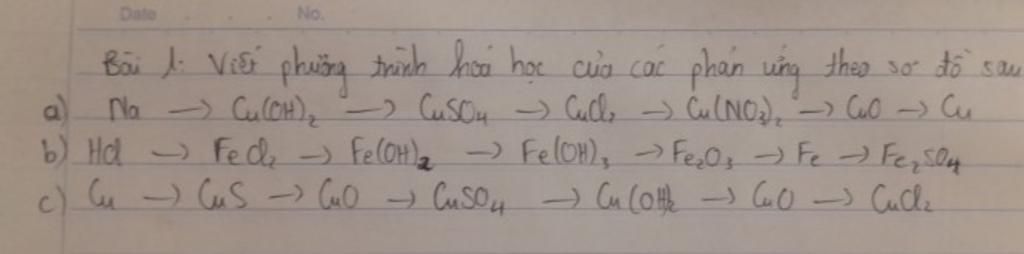 Date No.
Bài 1: Viết phương trình hoá học của các phản ứng theo sơ đồ sau
a) Na → Cu(OH)₂ → CuSO₄ → CuCl₂ → Cu(NO₃)₂ → CuO → Cu
b) HCl → FeCl₂ → Fe(OH)₂ → Fe(OH)₃ → Fe₂O₃ → Fe → Fe₂SO₄
c) Cu → CuS → CuO → CuSO₄ → Cu(OH)₂ → CuO → CuCl₂